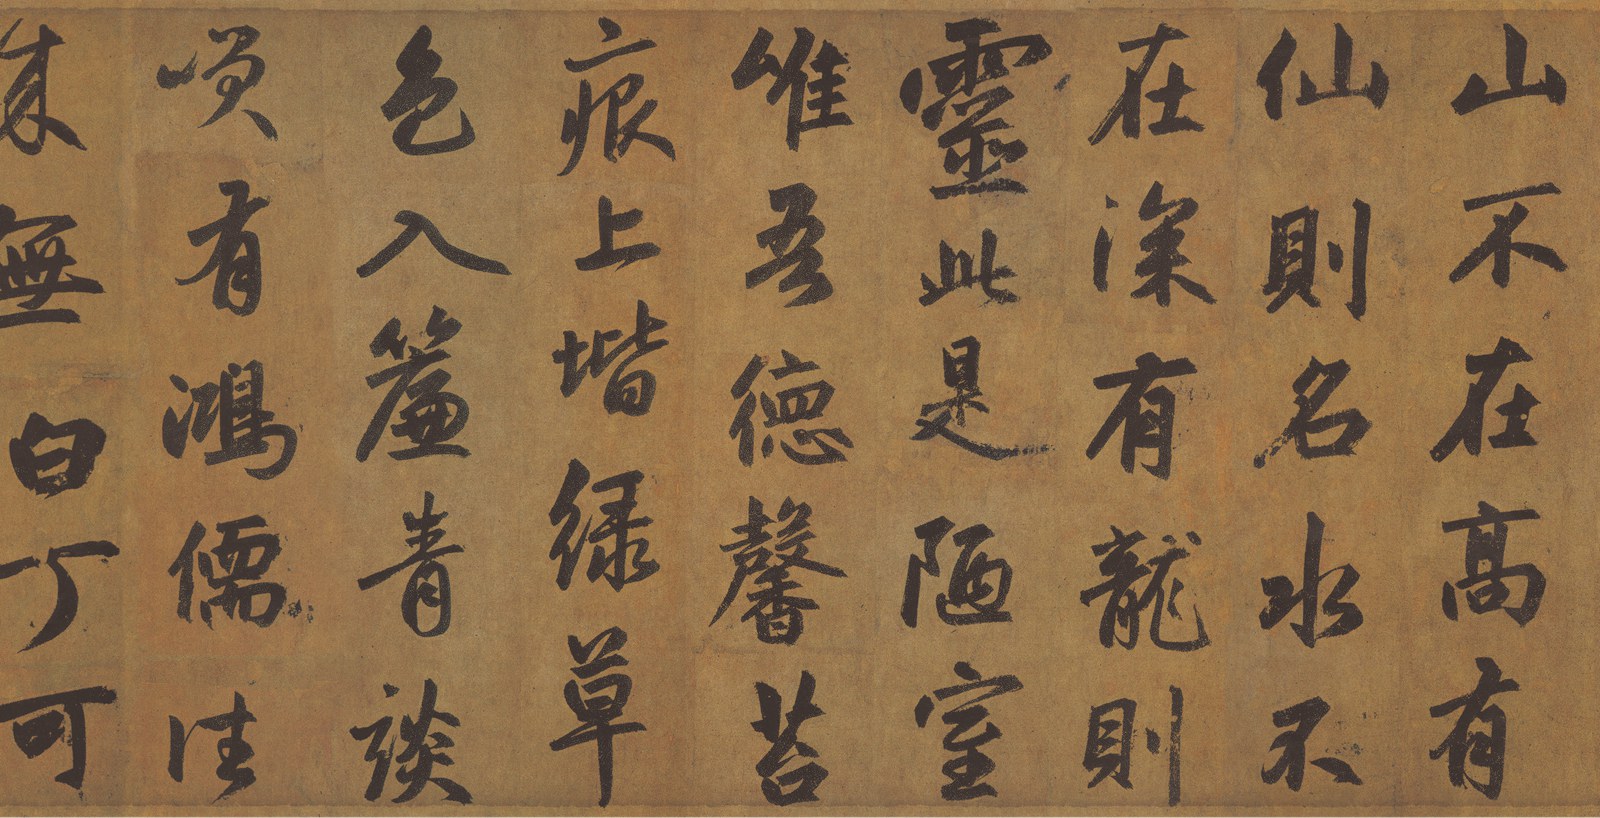 山不在高有
仙則名水不
在深有龍則
靈此是陋室
唯吾德馨苔
痕上堦緑草
色入簾青談
咲有鴻儒往
来無白丁可